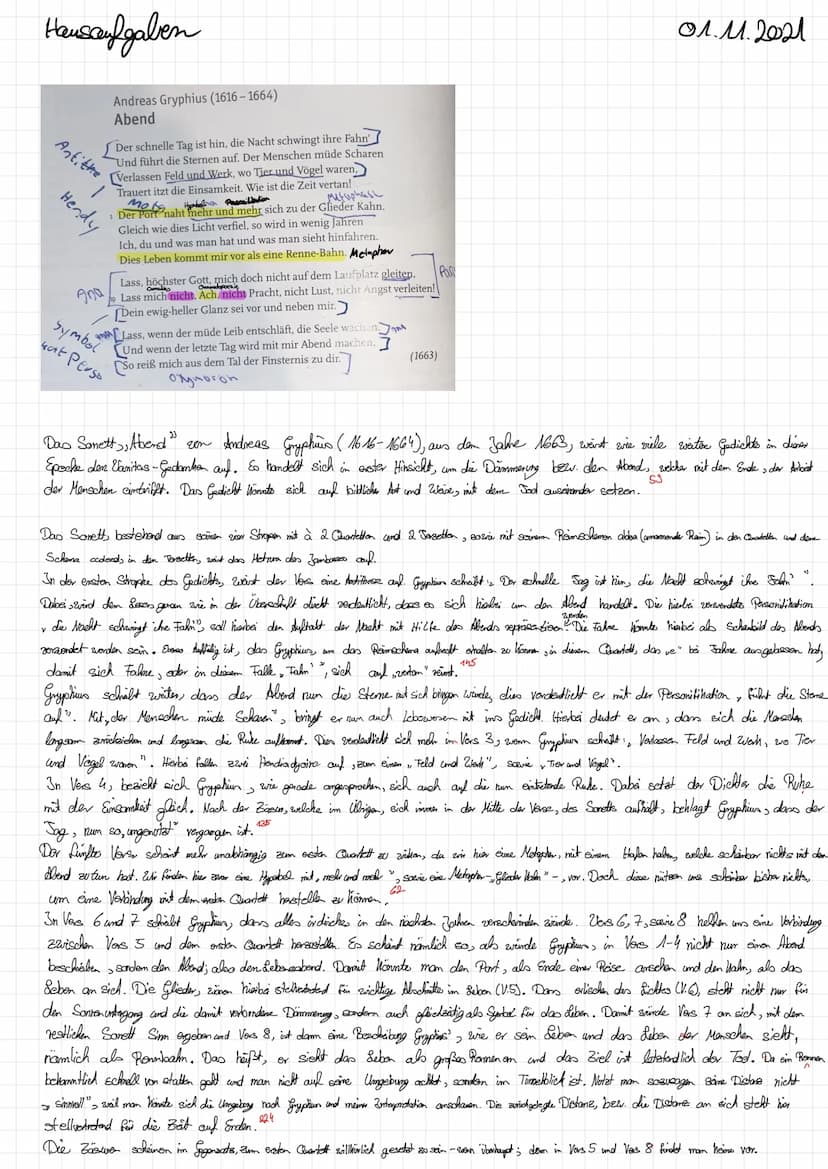 Hausaufgaben
01.11.2021
Andreas Gryphius (1616 – 1664)
Abend
Der schnelle Tag ist hin, die Nacht schwingt ihre Fahn'
Und führt die Sternen auf. Der Menschen müde Scharen
Verlassen Feld und Werk, wo Tier und Vögel waren,
Trauert itzt die Einsamkeit. Wie ist die Zeit vertan!
Der Port naht mehr und mehr sich zu der Glieder Kahn.
Gleich wie dies Licht verfiel, so wird in wenig Jahren
Ich, du und was man hat und was man sieht hinfahren.
Dies Leben kommt mir vor als eine Renne-Bahn. Metapher
Lass, höchster Gott, mich doch nicht auf dem Laufplatz gleiten,
Lass mich nicht Ach, nicht Pracht, nicht Lust, nicht Angst verleiten!
Dein ewig-heller Glanz sei vor und neben mir.
Lass, wenn der müde Leib entschläft, die Seele wachen,
Und wenn der letzte Tag wird mit mir Abend machen,
So reiß mich aus dem Tal der Finsternis zu dir.
(1663)
Antithe
Hendy
Metapher
Ana
Symbol
Oxymoron
Das Sonett „Abend" von Andreas Gryphius (1616-1664), aus dem Jahre 1663, weist wie viele weitere Gedichte in dieser
Epoche den Vanitas-Gedanken auf. Es handelt sich in erster Hinsicht, um die Dämmerung bzw. den Abend, welcher mit dem Ende, der Arbeit
der Menschen eintrifft. Das Gedicht könnte sich auf bildliche Art und Weise, mit dem Tod auseinander setzen.
53
Das Sonett, bestehend aus seinen vier Stropen mit à 2 Quartetten und 2 Terzetten, sowie mit seinem Reimschemen abba (umarmender Reim) in den Quartetten und dem
Schema ccdeed, in den Terzetten, weist das Metrum des Jambusses auf.
In der ersten Strophe des Gedichts, weist der Vers eine Antithese auf. Gryphius schreibt „Der schnelle Tag ist hin, die Nacht schwingt ihre Fahn'".
Dabei wird dem Leser genau wie in der Überschrift direkt verdeutlicht, dass es sich hierbei um den Abend handelt. Die hierbei verwendete Personifikation
„die Nacht schwingt ihre Fahn", soll hierbei den Auftakt der Nacht mit Hilfe des Abends repräsentieren. Die Fahne könnte hierbei als Scheinbild des Abends
verwendet worden sein. Etwas Auffällig ist, das Gryphius, um das Reimschema aufrecht erhalten zu können, in diesem Quartett, das „e" bei Fahne ausgelassen hat,
damit sich Fahne, oder in diesem Falle „Fahn'", sich auf „vertan" reimt.
145
Gryphius schreibt weiter, dass der Abend nun die Sterne mit sich bringen würde, dies verdeutlicht er mit der Personifikation „führt die Sterne
auf". Mit „der Menschen müde Scharen", bringt er nun auch Lebewesen mit ins Gedicht. Hierbei deutet er an, dass sich die Menschen
langsam zurückziehen und langsam die Ruhe aufkommt. Dies verdeutlicht sich mehr im Vers 3, wenn Gryphius schreibt „Verlassen Feld und Werk, wo Tier
und Vögel waren". Hierbei fallen zwei Hendiadyoins auf, zum einen „Feld und Werk", sowie „Tier und Vögel".
In Vers 4, bezieht sich Gryphius, wie gerade angesprochen, sich auch auf die nun eintretende Ruhe. Dabei setzt der Dichter die Ruhe
mit der Einsamkeit gleich. Nach der Zäsur, welche im Übrigen, sich immer in der Mitte der Verse, des Sonetts aufhält, beklagt Gryphius, dass der
Tag, nun so „ungenutzt" vergangen ist.
135
Der fünfte Vers scheint mehr unabhängig zum ersten Quartett zu wirken, da wir hier eine Metapher, mit einem Hafen haben, welche scheinbar nichts mit dem
Abend zu tun hat. Wir finden hier zwar eine Hyperbel mit „mehr und mehr", sowie eine Metapher – „Glieder Kahn" –, vor. Doch diese nützen uns scheinbar bisher nichts,
um eine Verbindung mit dem ersten Quartett herstellen zu können.
62
In Vers 6 und 7 schreibt Gryphius, dass alles irdische in den nächsten Jahren verschwinden würde. Vers 6, 7, sowie 8 helfen uns eine Verbindung
zwischen Vers 5 und dem ersten Quartett herzustellen. Es scheint nämlich so, als würde Gryphius, in Vers 1-4 nicht nur einen Abend
beschreiben, sondern den Abend; also den Lebensabend. Damit könnte man den Port, als Ende einer Reise ansehen und den Kahn, als das
Leben an sich. Die Glieder, wären hierbei stellvertretend für wichtige Abschnitte im Leben (V.5). Dass erlischen des Lichtes (V.6), steht nicht nur für
den Sonnenuntergang und die damit verbundene Dämmerung, sondern auch gleichzeitig als Symbol für das Leben. Damit würde Vers 7 an sich, mit dem
restlichen Sonett Sinn ergeben und Vers 8, ist dann eine Beschreibung Gryphius', wie er sein Leben und das Leben der Menschen sieht,
nämlich als Rennbahn. Das heißt, er sieht das Leben als großes Rennen an und das Ziel ist letztendlich der Tod. Da ein Rennen
bekanntlich schnell von statten geht und man nicht auf seine Umgebung achtet, sondern im Tunnelblick ist. Nutzt man sozusagen seine Distanz nicht
„sinnvoll", weil man könnte sich die Umgebung nach Gryphius und meiner Interpretation anschauen. Die zurückgelegte Distanz, bzw. die Distanz an sich steht hier
stellvertretend für die Zeit auf Erden.
224
Die Zäsuren scheinen im Gegensatz, zum ersten Quartett willkürlich gesetzt zu sein – wenn überhaupt; denn in Vers 5 und Vers 8 findet man keine vor.